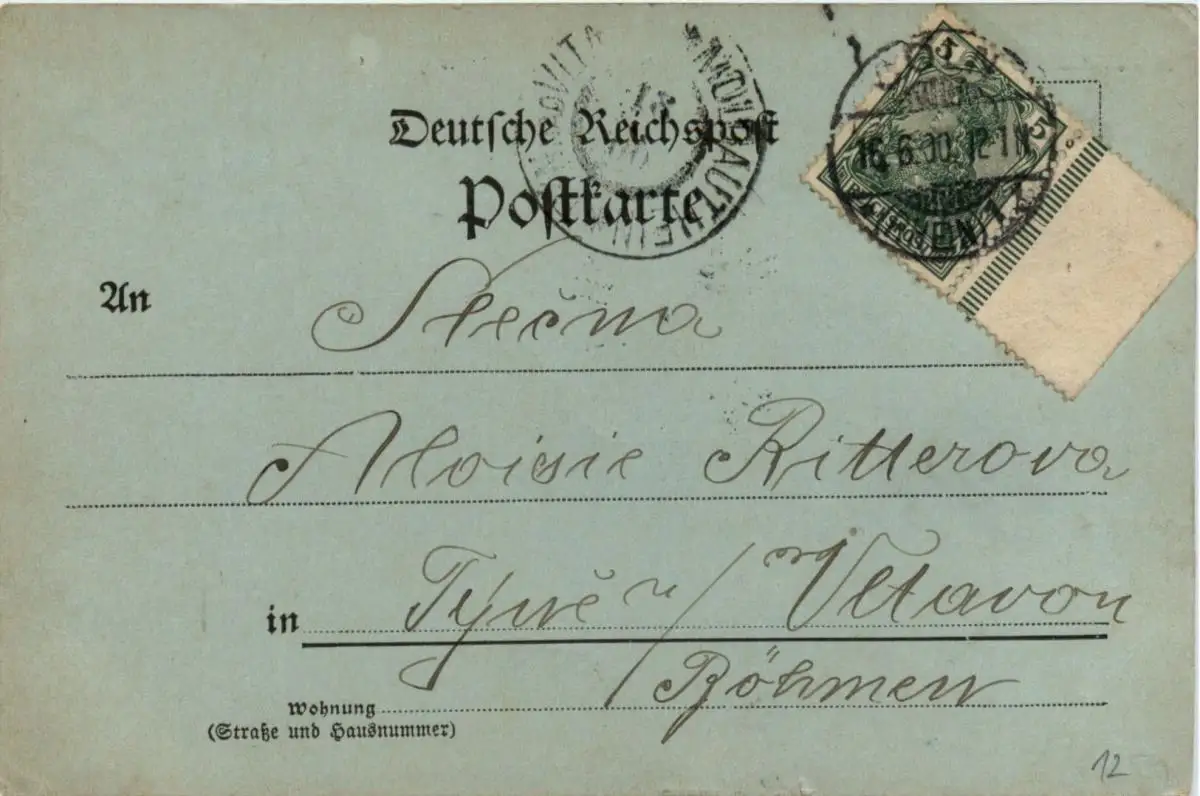 Deutsche Reichspost
Postkarte
5 5
16.6.00.12-1N
MOLDAUTHEIN
An Slečna
Aloisie Ritterova
in Týně n/Vltavou
Böhmen
Wohnung
(Straße und Hausnummer)
12